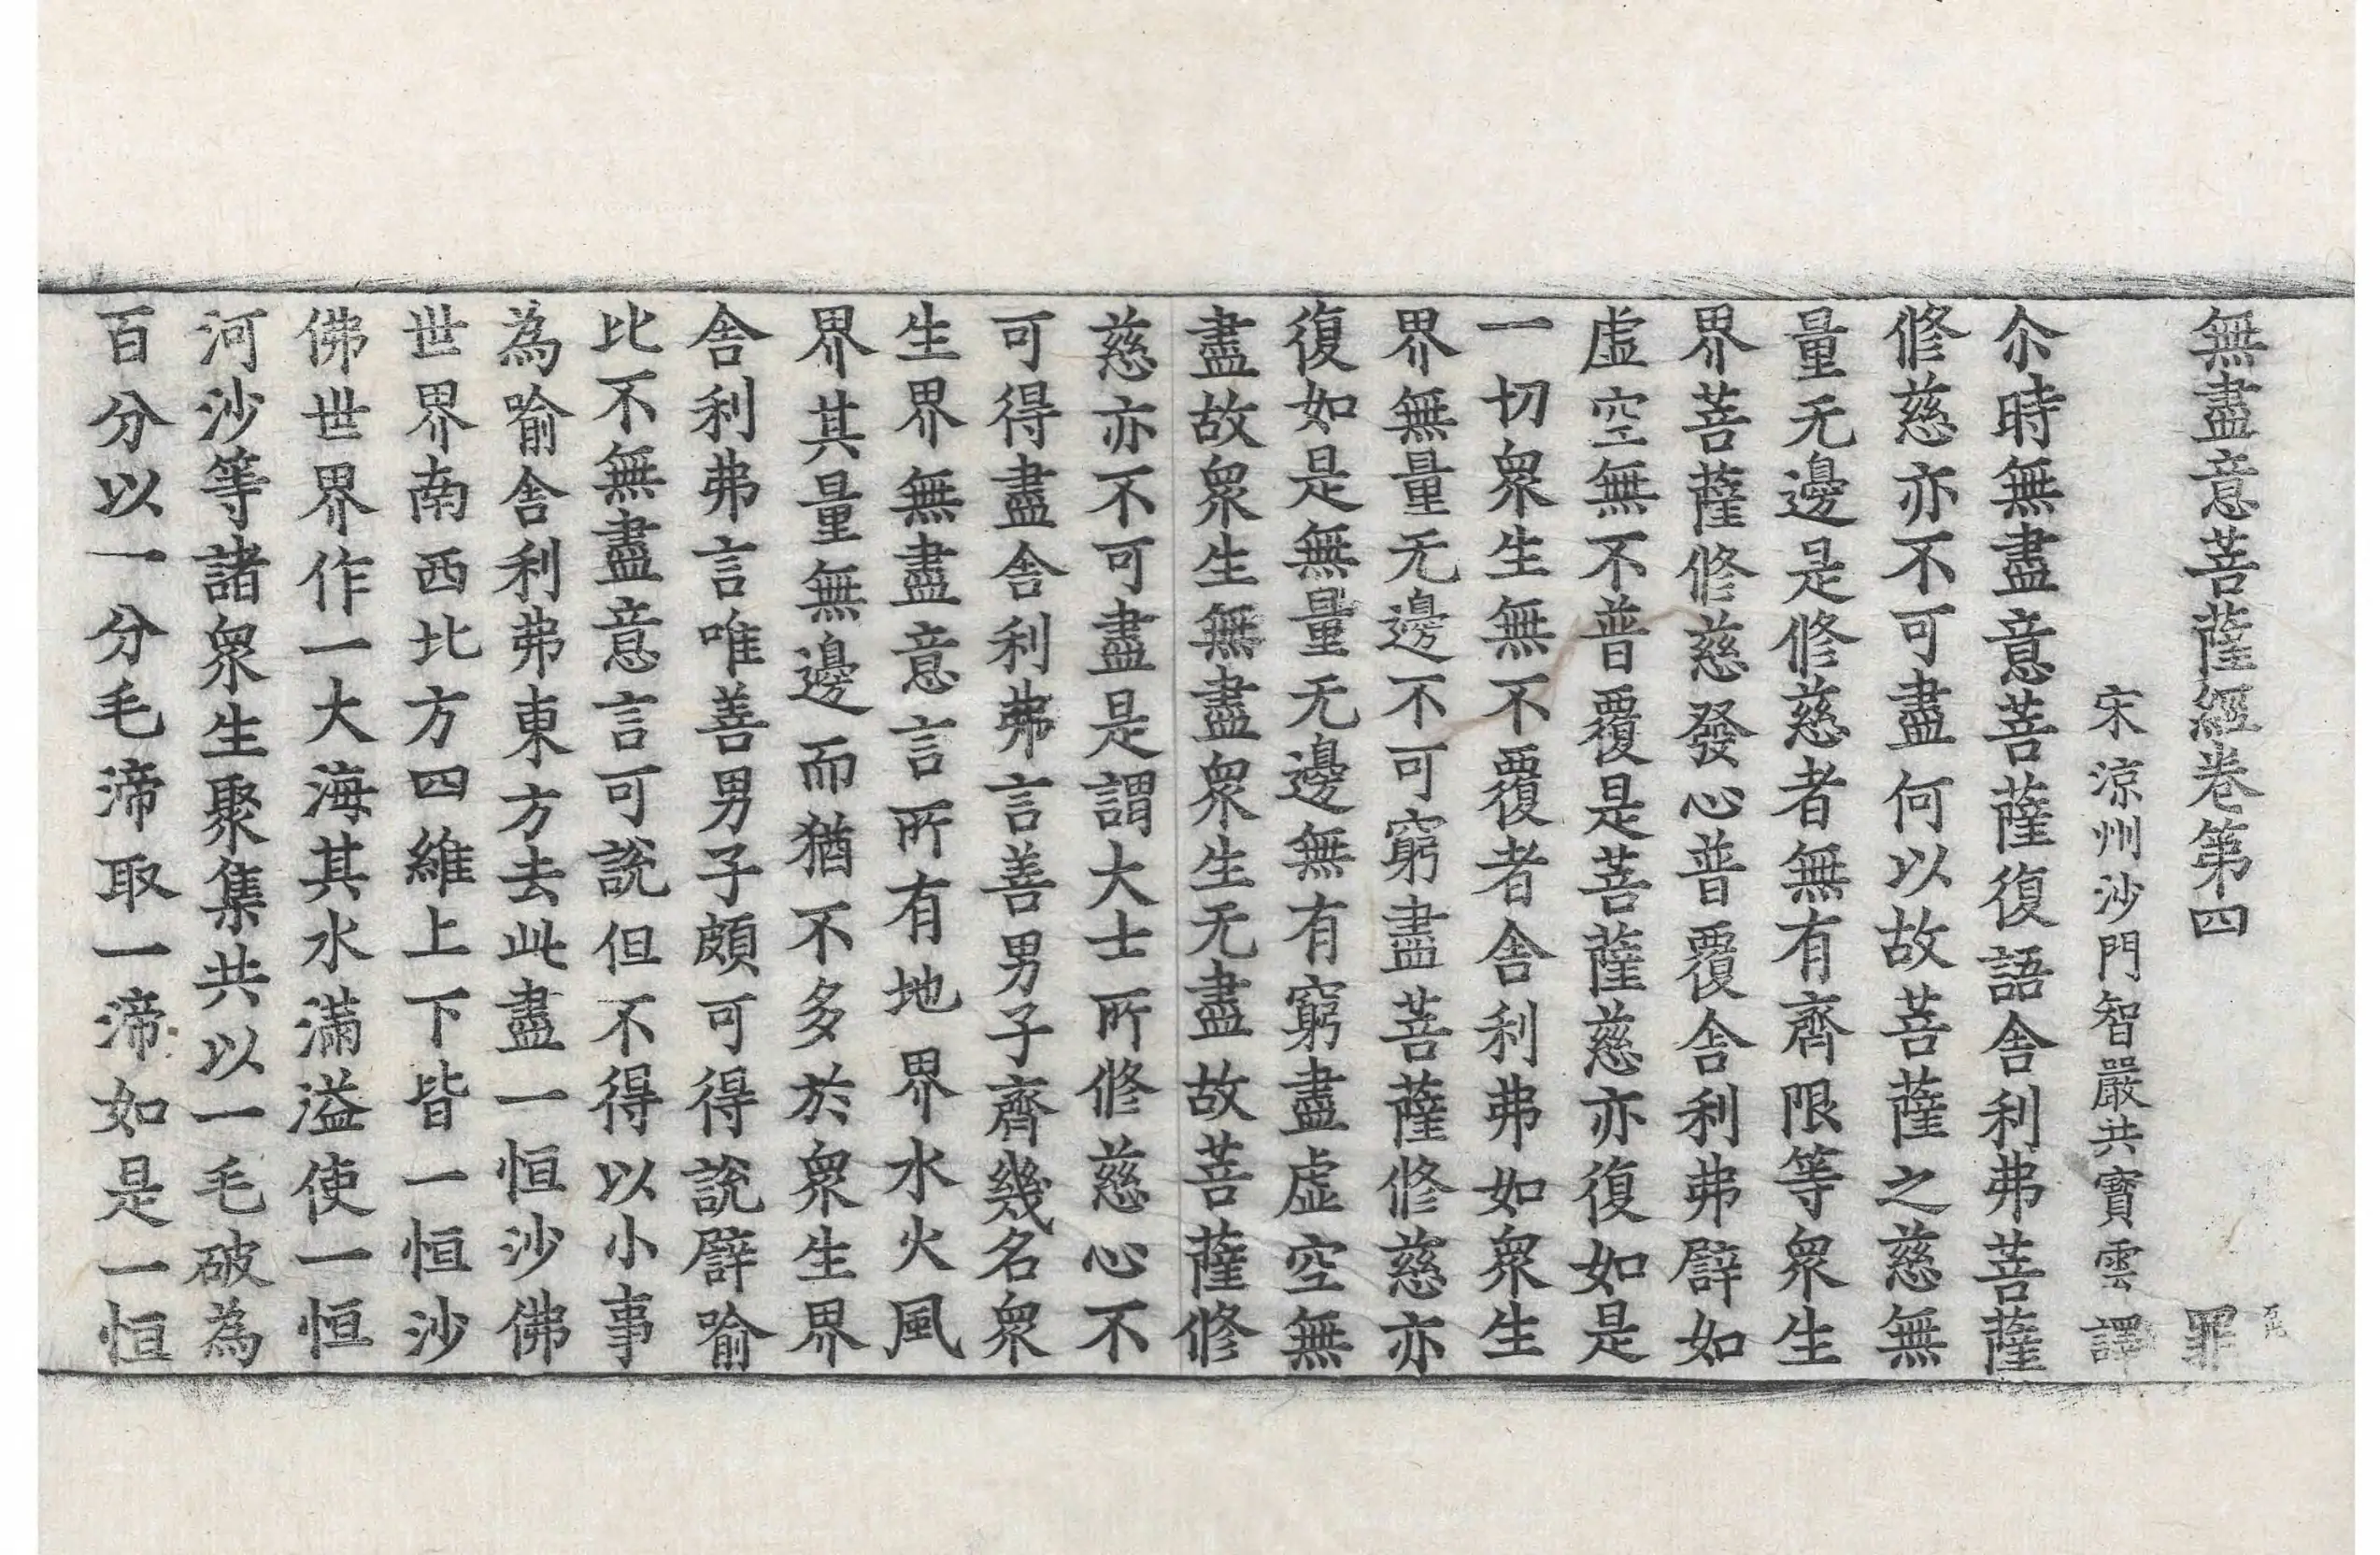 無盡意菩薩經卷第四 罪
宋涼州沙門智嚴共寶雲譯
尒時無盡意菩薩復語舍利弗菩薩
修慈亦不可盡何以故菩薩之慈無
量无邊是修慈者無有齊限等衆生
界菩薩修慈發心普覆舍利弗譬如
虛空無不普覆是菩薩慈亦復如是
一切衆生無不覆者舍利弗如衆生
界無量无邊不可窮盡菩薩修慈亦
復如是無量无邊無有窮盡虛空無
盡故衆生無盡衆生无盡故菩薩修
慈亦不可盡是謂大士所修慈心不
可得盡舍利弗言善男子齊幾名衆
生界無盡意言所有地界水火風
界其量無邊而猶不多於衆生界
舍利弗言唯善男子頗可得說譬喻
比不無盡意言可說但不得以小事
為喻舍利弗東方去此盡一恒沙佛
世界南西北方四維上下皆一恒沙
佛世界作一大海其水滿溢使一恒
河沙等諸衆生聚集共以一毛破為
百分以一分毛渧取一渧如是一恒